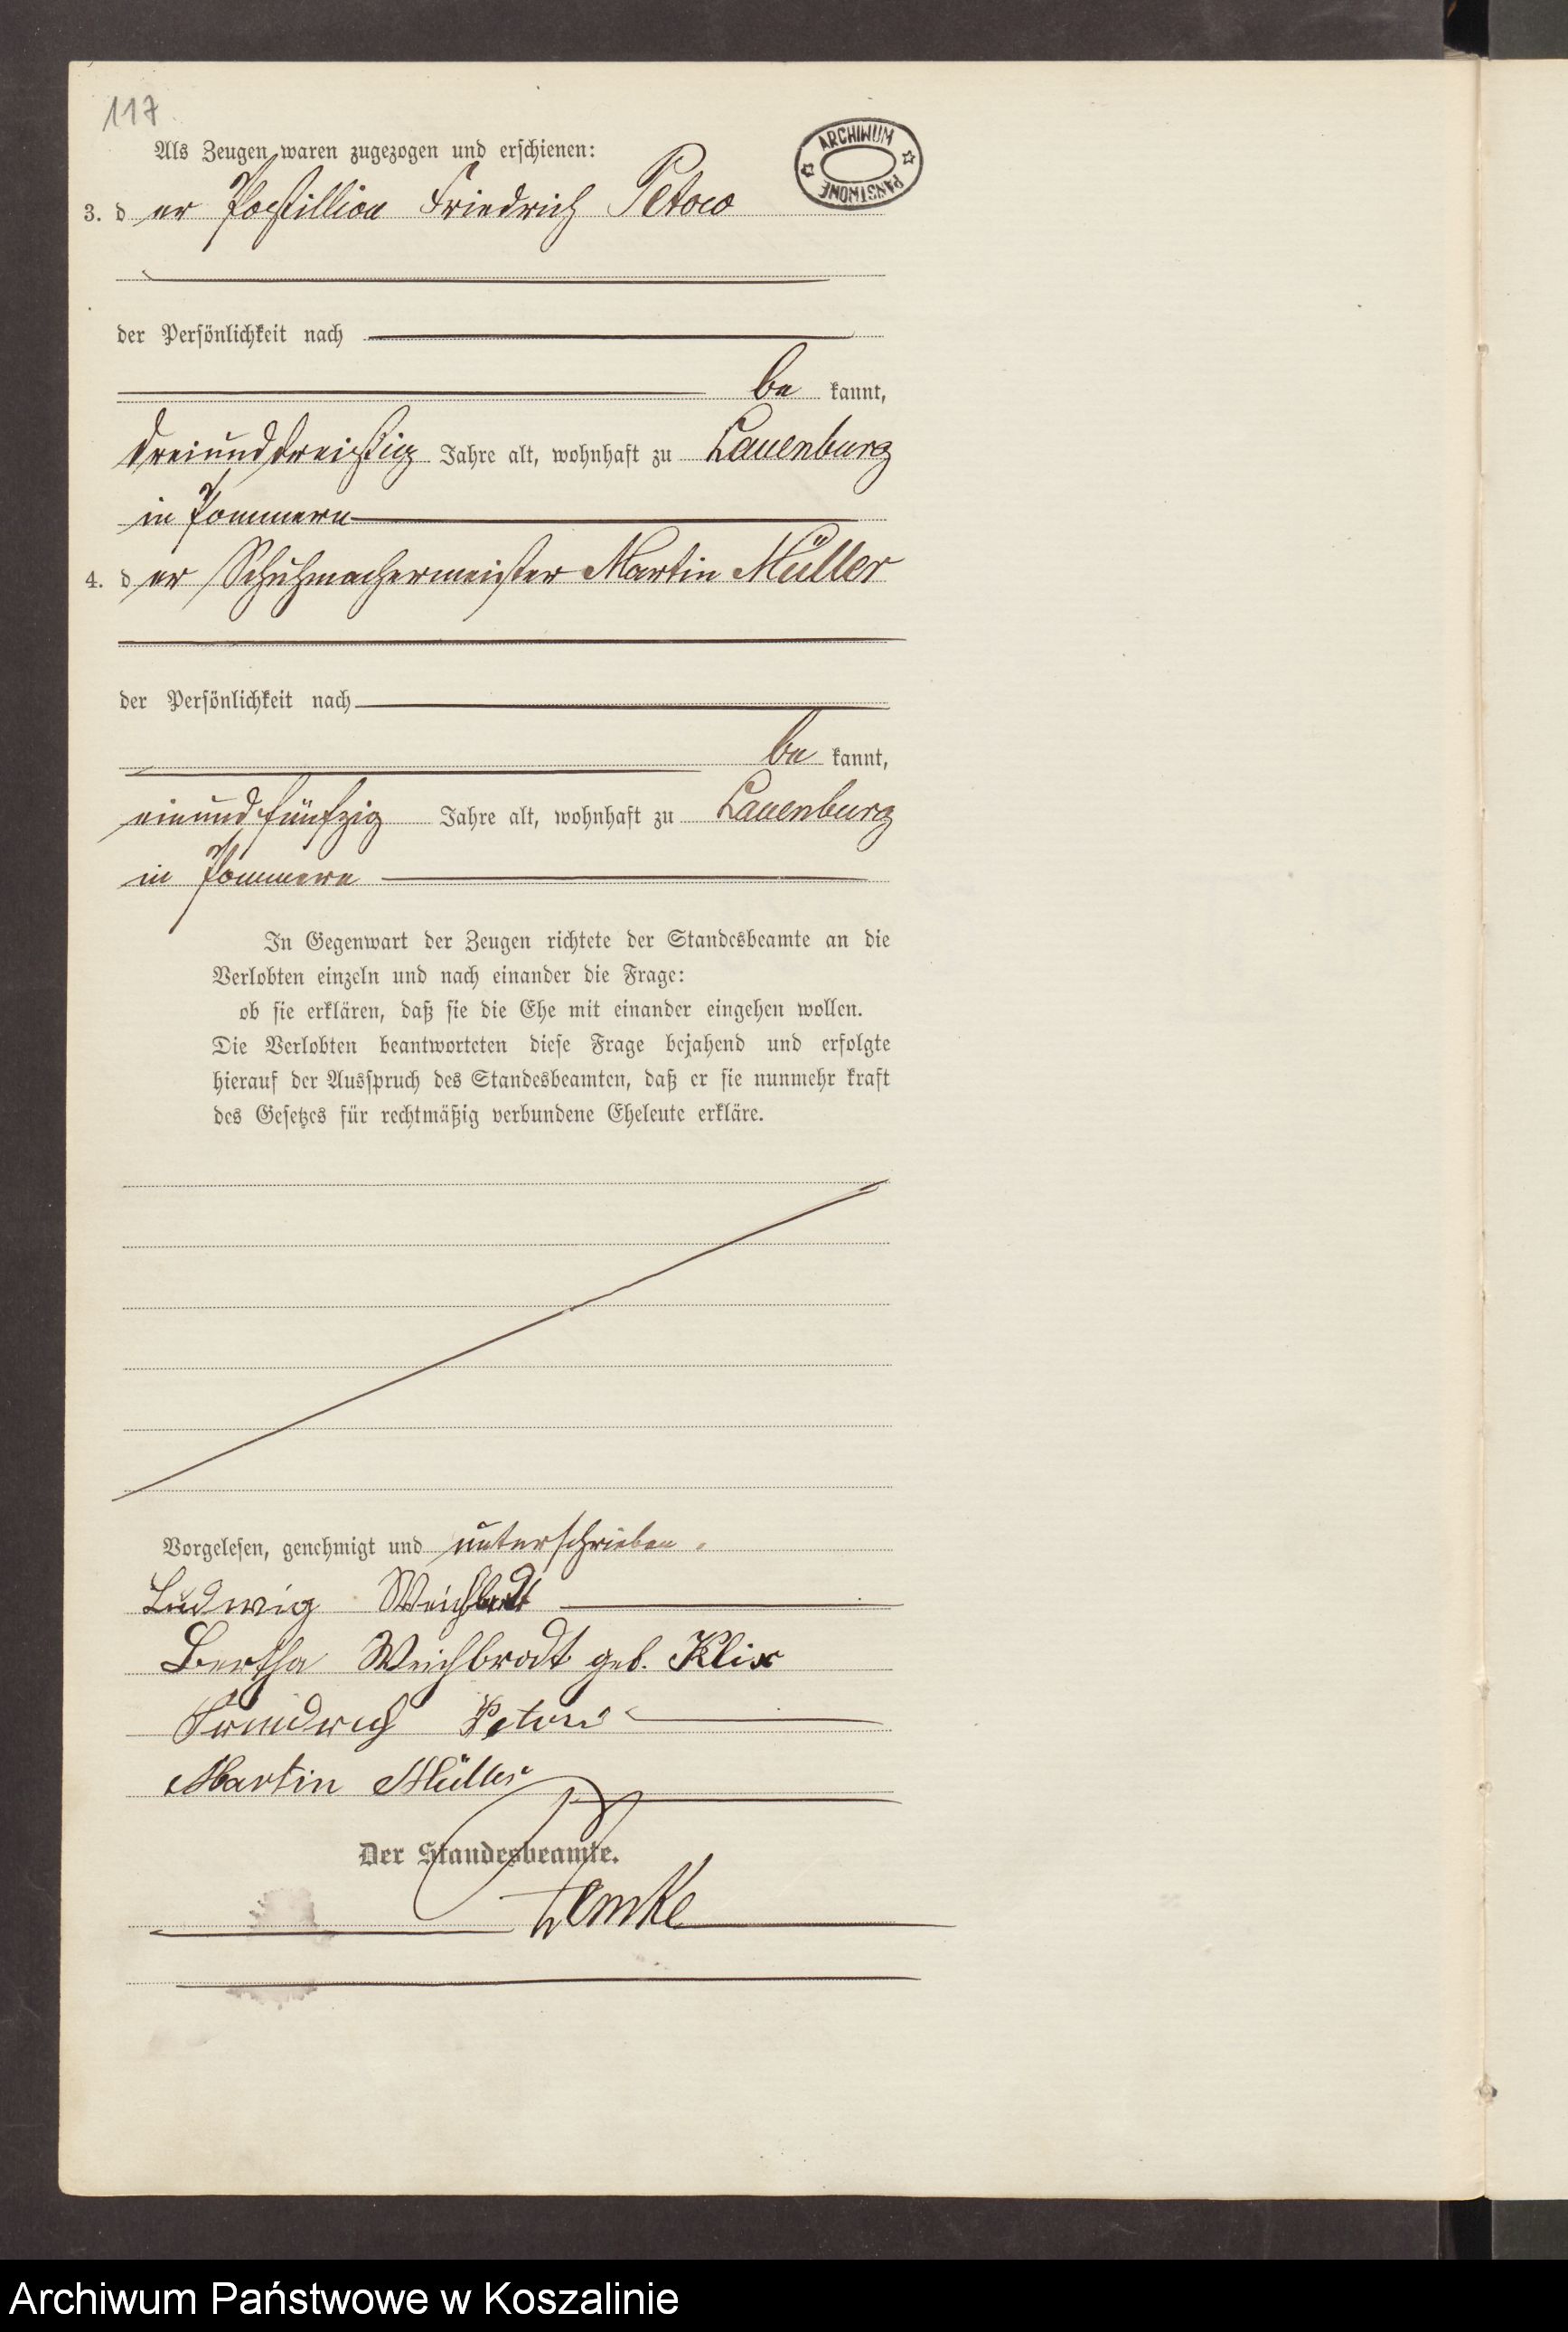 117.
Als Zeugen waren zugezogen und erschienen:
ARCHIWUM PAŃSTWOWE
3. d er Postillion Friedrich Petow
der Persönlichkeit nach
be kannt,
dreiunddreißig Jahre alt, wohnhaft zu Lauenburg
in Pommern
4. d er Schuhmachermeister Martin Müller
der Persönlichkeit nach
be kannt,
einundfünfzig Jahre alt, wohnhaft zu Lauenburg
in Pommern
In Gegenwart der Zeugen richtete der Standesbeamte an die
Verlobten einzeln und nach einander die Frage:
ob sie erklären, daß sie die Ehe mit einander eingehen wollen.
Die Verlobten beantworteten diese Frage bejahend und erfolgte
hierauf der Ausspruch des Standesbeamten, daß er sie nunmehr kraft
des Gesetzes für rechtmäßig verbundene Eheleute erkläre.
Vorgelesen, genehmigt und unterschrieben.
Ludwig Weichbrodt
Bertha Weichbrodt geb. Klix
Friedrich Petow
Martin Müller
Der Standesbeamte.
Zemke
Archiwum Państwowe w Koszalinie